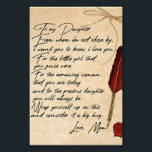 To my Daughter
Even when I'm not close by,
I want you to know I love you
For the little girl that
you once were.
For the amazing woman
that you are today
and to the precious daughter
you will always be.
Wrap yourself up in this
and consider it a big hug.
Love, Mom